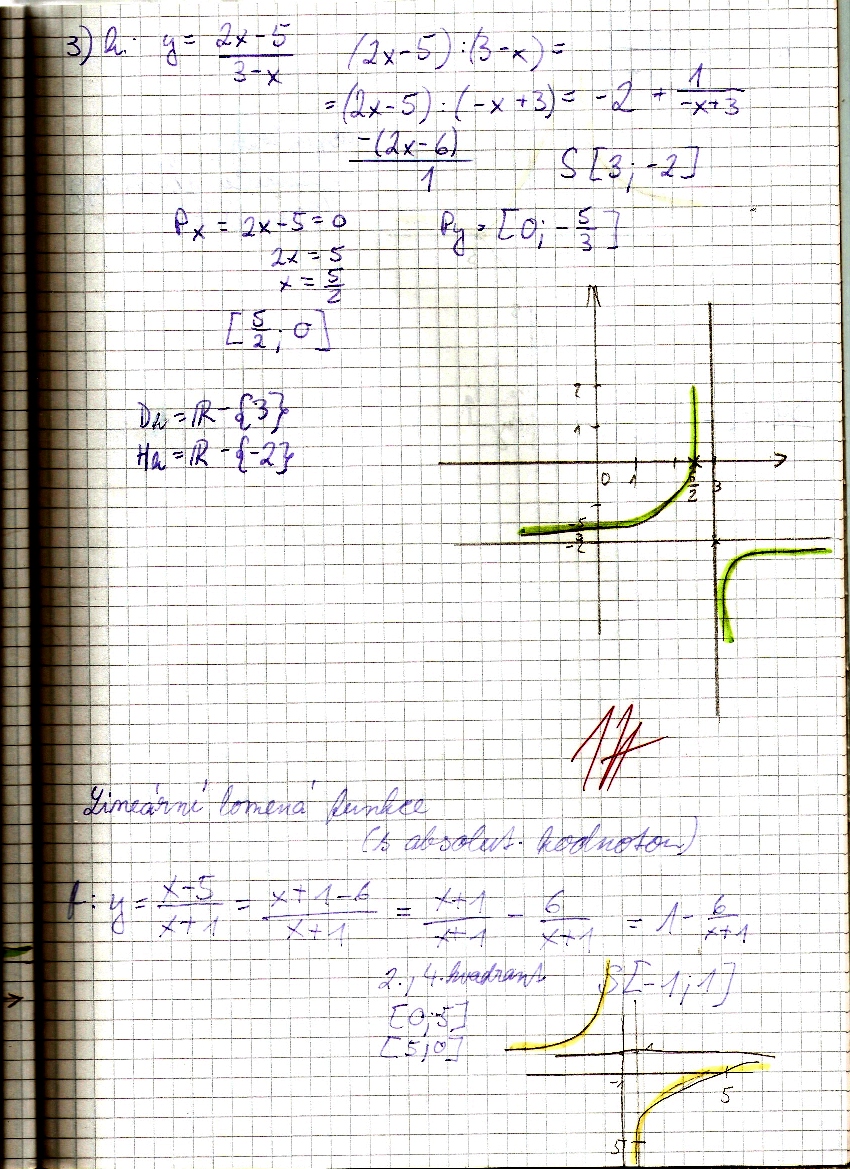 3) h: y = \frac{2x-5}{3-x} (2x-5):(3-x)=
=(2x-5):(-x+3)= -2 + \frac{1}{-x+3}
-(2x-6)
1 S[3;-2]
Px = 2x-5=0 Py = [0;-\frac{5}{3}]
2x=5
x=\frac{5}{2}
[\frac{5}{2};0]
Dh=R-{3}
Hh=R-{-2}
2
1
0 1 \frac{5}{2} 3
-\frac{5}{3}
-2
Lineární lomená funkce
(s absolut. hodnotou)
f: y = \frac{x-5}{x+1} = \frac{x+1-6}{x+1} = \frac{x+1}{x+1} - \frac{6}{x+1} = 1-\frac{6}{x+1}
2., 4. kvadrant S[-1;1]
[0;5]
[5;0]
1
-1 5
5